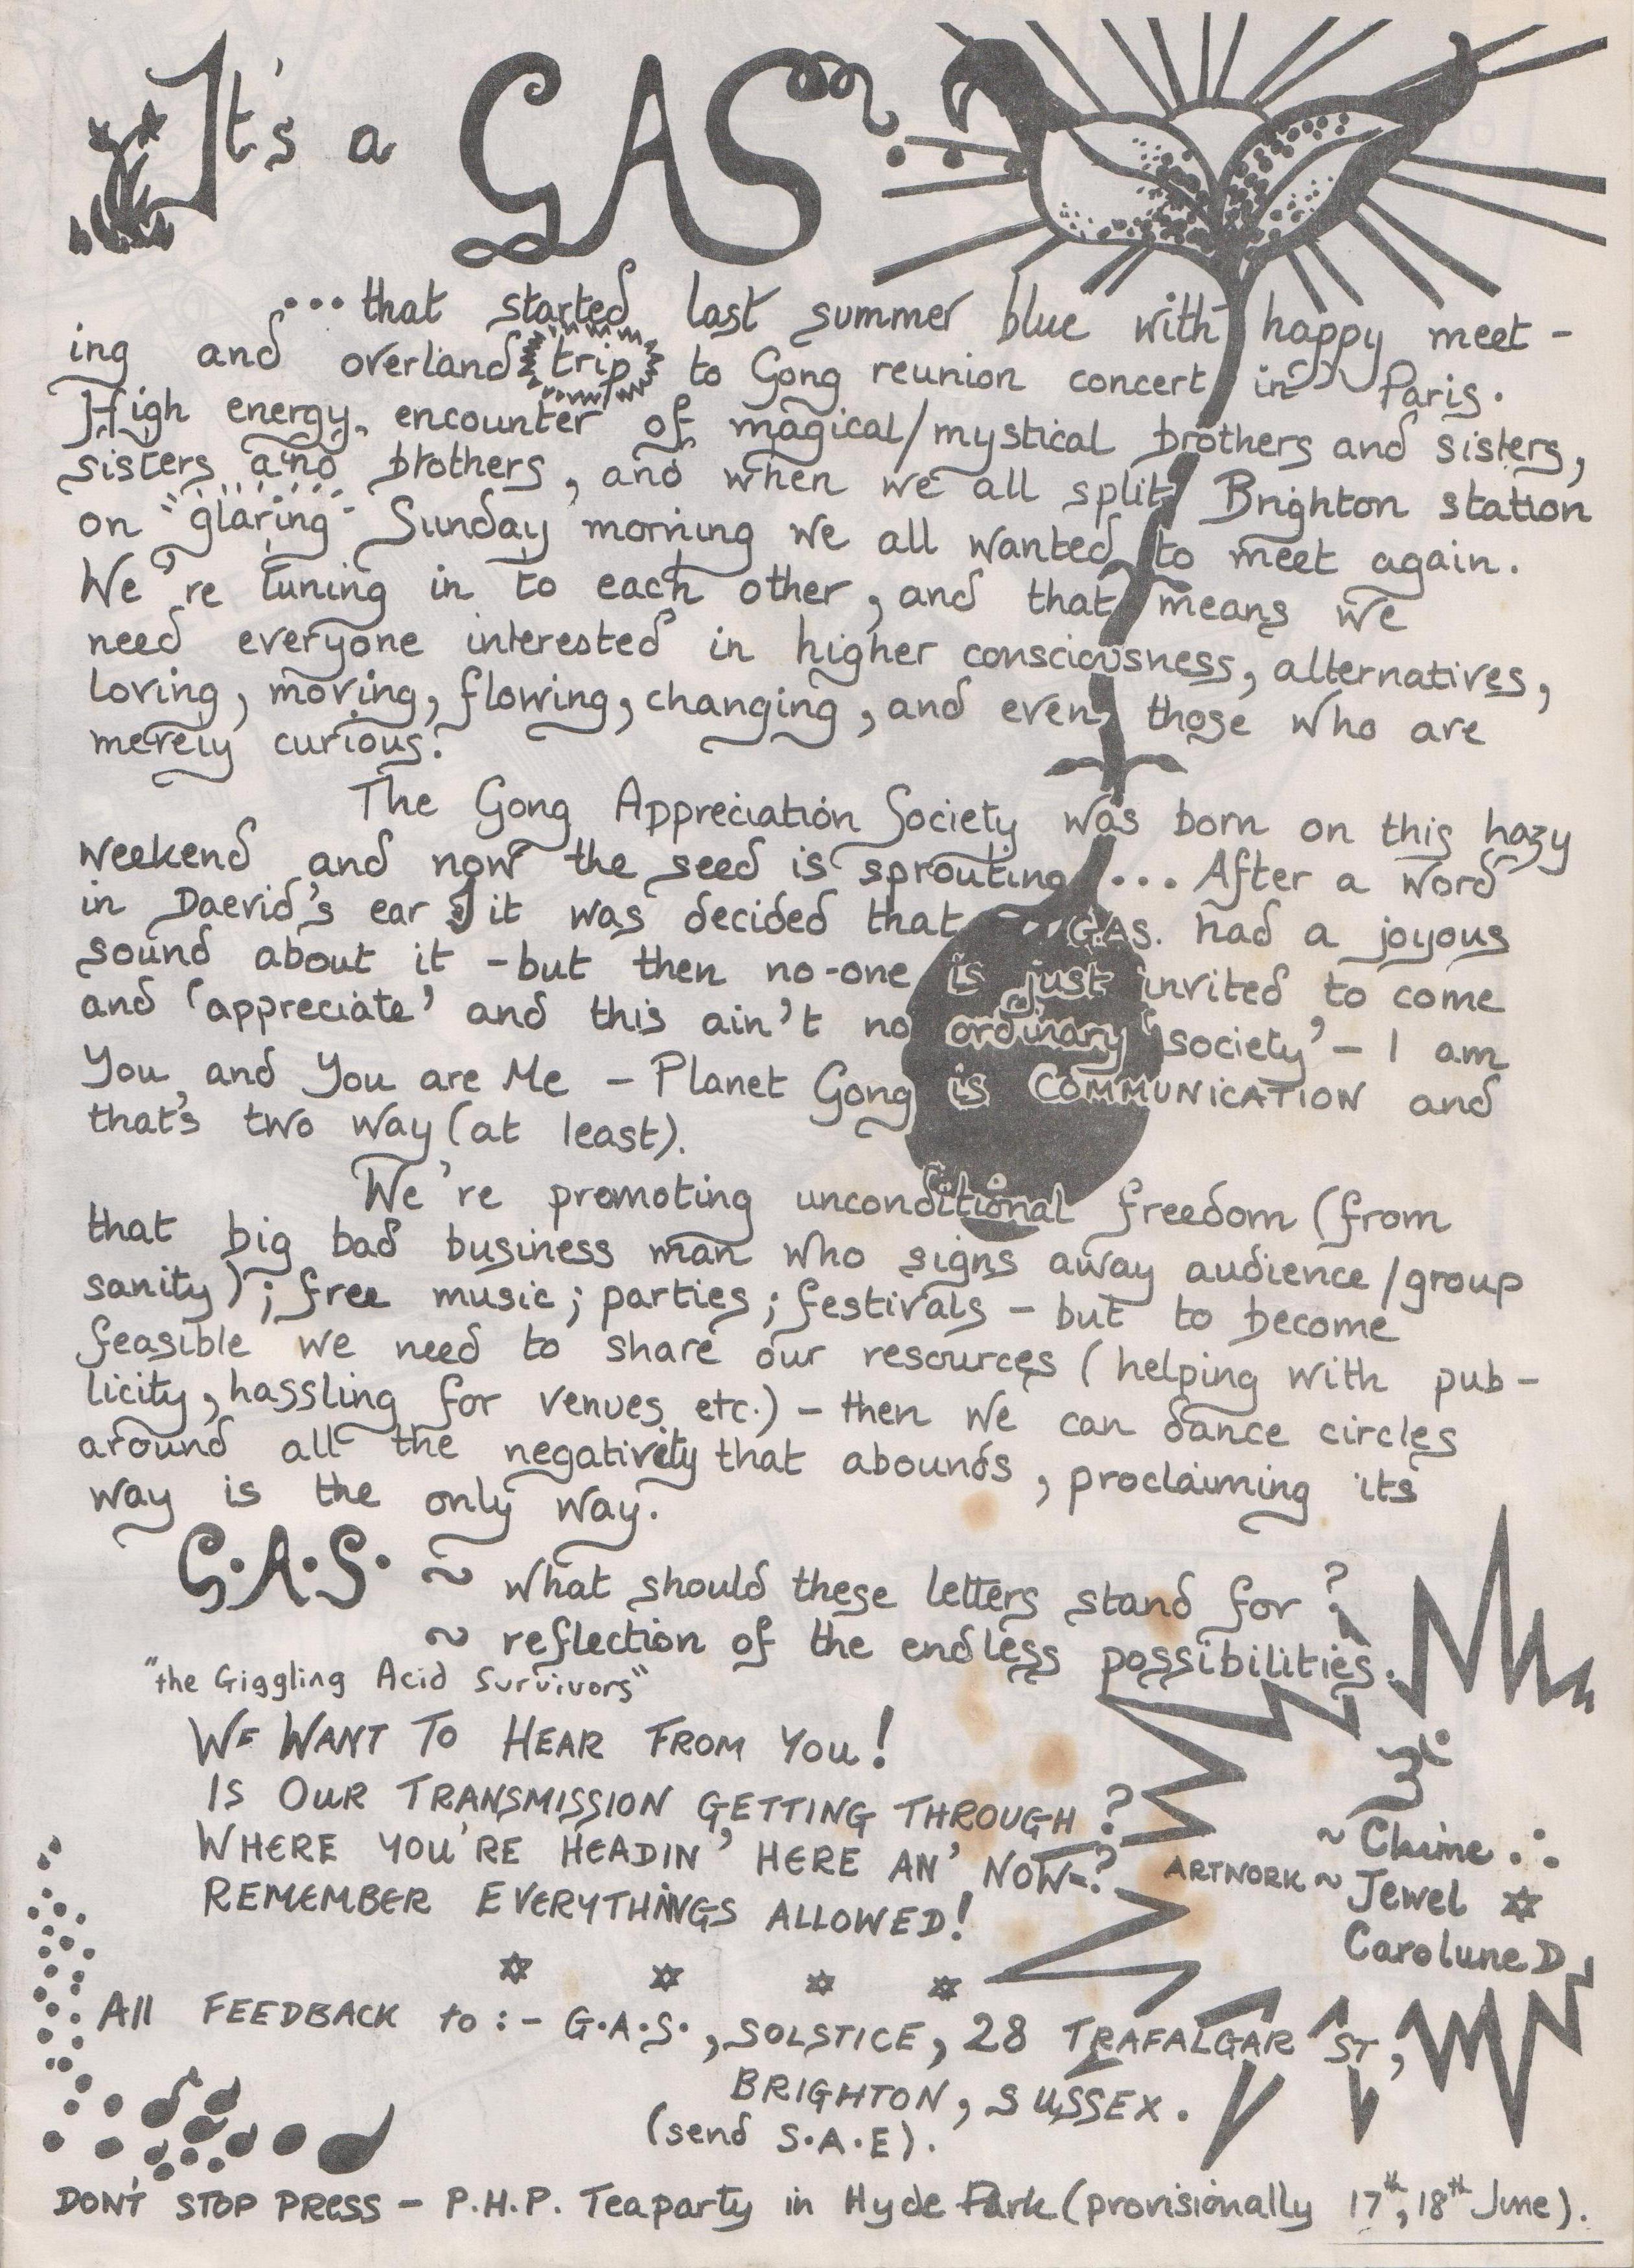 It's a GAS
...that started last summer blue with happy meet-
ing and overland trip to Gong reunion concert in Paris.
High energy encounter of magical/mystical brothers and sisters,
sisters and brothers, and when we all split Brighton station
on "glaring" Sunday morning we all wanted to meet again.
We're tuning in to each other, and that means we
need everyone interested in higher consciousness, alternatives,
loving, moving, flowing, changing, and even those who are
merely curious.
The Gong Appreciation Society was born on this hazy
weekend and now the seed is sprouting... After a word
in Daevid's ear it was decided that G.AS. had a joyous
sound about it - but then no-one is just invited to come
and 'appreciate' and this ain't no ordinary 'society' - I am
You and You are Me - Planet Gong is COMMUNICATION and
that's two way (at least).
We're promoting unconditional freedom (from
that big bad business man who signs away audience/group
sanity); free music; parties; festivals - but to become
feasible we need to share our resources (helping with pub-
licity, hassling for venues etc.) - then we can dance circles
around all the negativity that abounds, proclaiming its
way is the only way.
G.A.S. ~ what should these letters stand for?
~ reflection of the endless possibilities.
"the Giggling Acid Survivors"
WE WANT TO HEAR FROM YOU!
IS OUR TRANSMISSION GETTING THROUGH?
WHERE YOU'RE HEADIN' HERE AN' NOW-?
REMEMBER EVERYTHINGS ALLOWED!
ARTWORK ~ Chime
~ Jewel
Carolune D
All FEEDBACK to:- G.A.S., SOLSTICE, 28 TRAFALGAR ST,
BRIGHTON, SUSSEX.
(send S.A.E).
DON'T STOP PRESS - P.H.P. Teaparty in Hyde Park (provisionally 17th, 18th June).